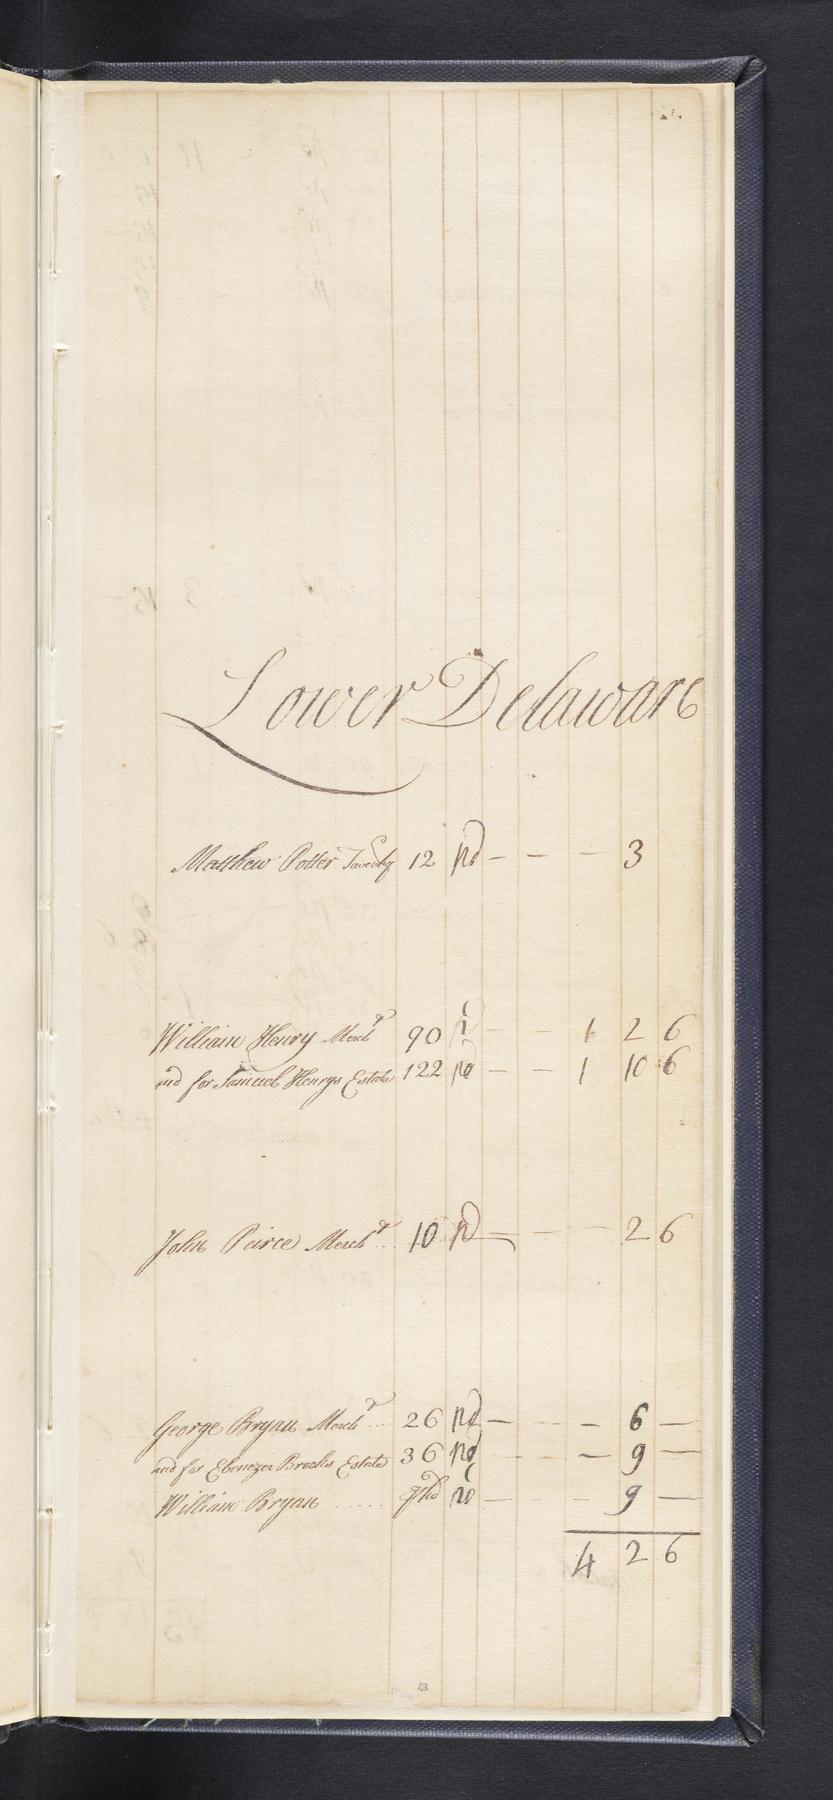 Lower Delaware
Matthew Potter 12 pd - - - 3
William Henry Mercht 90 pd - - 1 2 6
and for Samuel Henrys Estate 122 pd - - 1 10 6
John Peirce Mercht .. 10 pd - - - 2 6
George Bryan Mercht ... 26 pd - - - 6 -
and for Ebenezer Brooks Estate 36 pd - - - 9 -
William Bryan ...... pd - - - 9 -
4 2 6
13